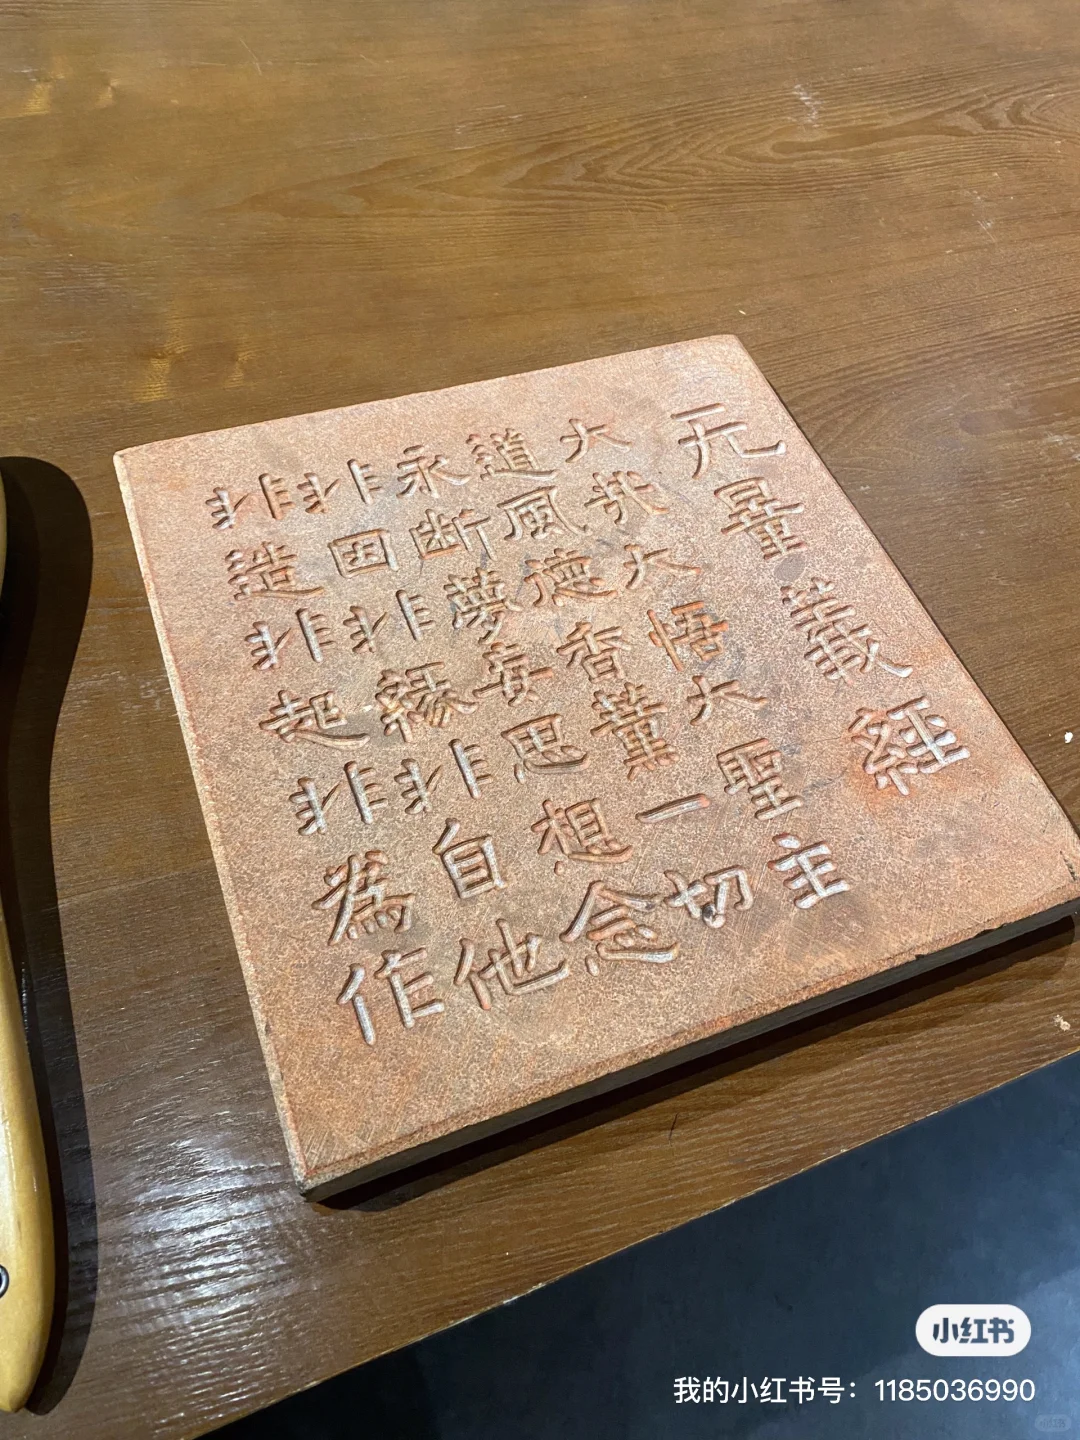 无量義經
大哉大悟大聖主
道風德香薰一切
永斷夢妄思想念
非因非緣非自他
非造非起非為作
小红书
我的小红书号：1185036990